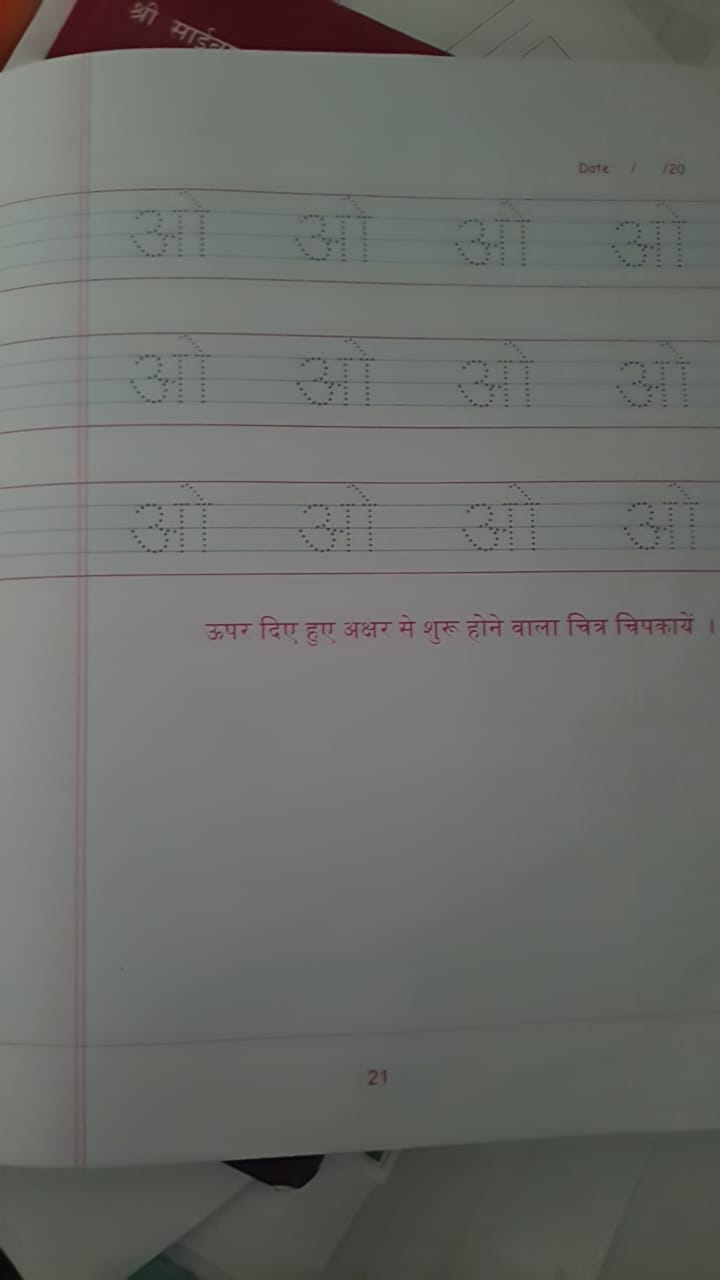 श्री
Date / /20
ओ ओ ओ ओ
ओ ओ ओ ओ
ओ ओ ओ ओ
ऊपर दिए हुए अक्षर से शुरू होने वाला चित्र चिपकायें ।
21